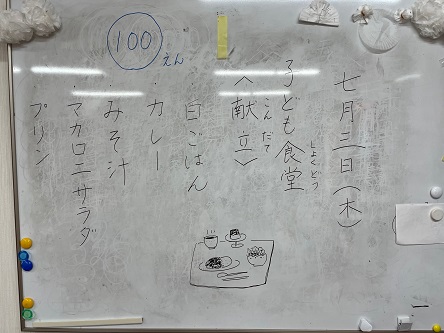 七月三日(木)
子ども食堂
しょくどう
〈献立〉
こんだて
白ごはん
・カレー
・みそ汁
・マカロニサラダ
プリン
100えん